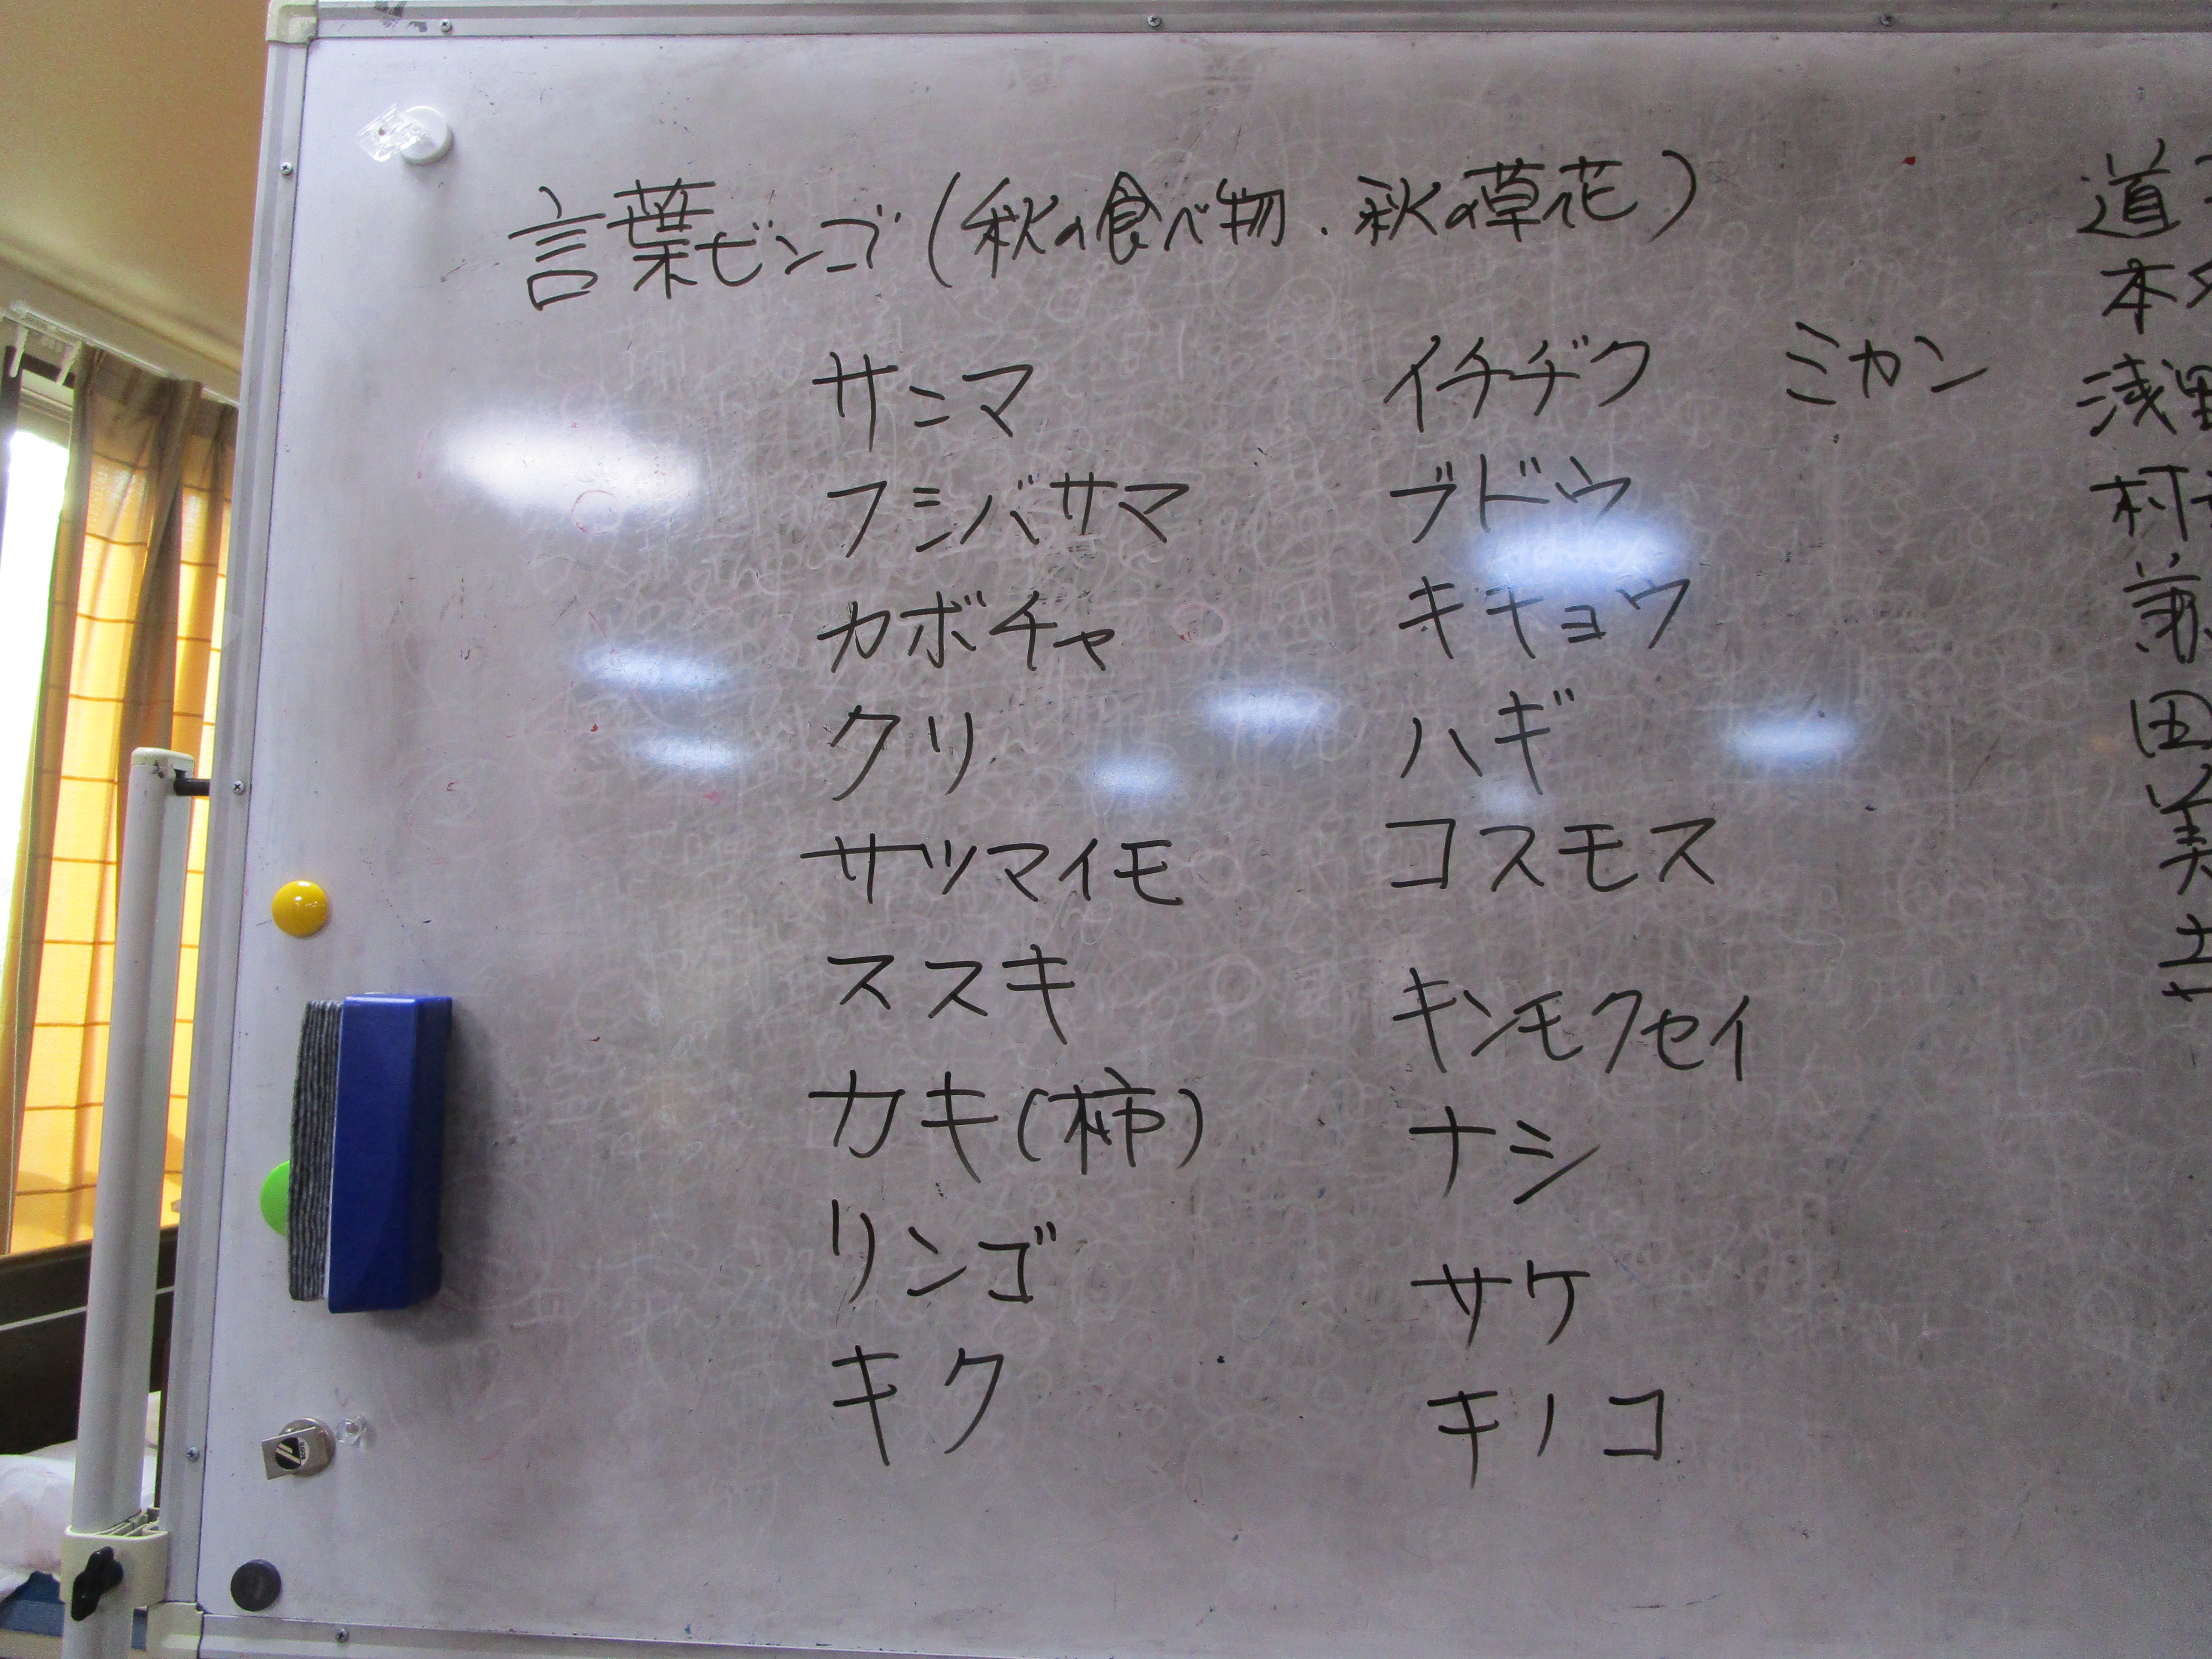 言葉ビンゴ(秋の食べ物．秋の草花)
サンマ
フジバサマ
カボチャ
クリ
サツマイモ
ススキ
カキ(柿)
リンゴ
キク
イチヂク
ブドウ
キキョウ
ハギ
コスモス
キンモクセイ
ナシ
サケ
キノコ
ミカン
道
本
浅野
村
田
美